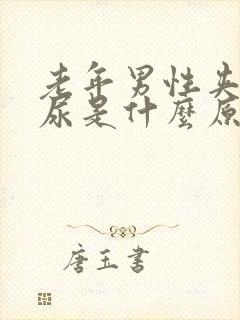 老年男性失
尿是什麼原
唐玉書